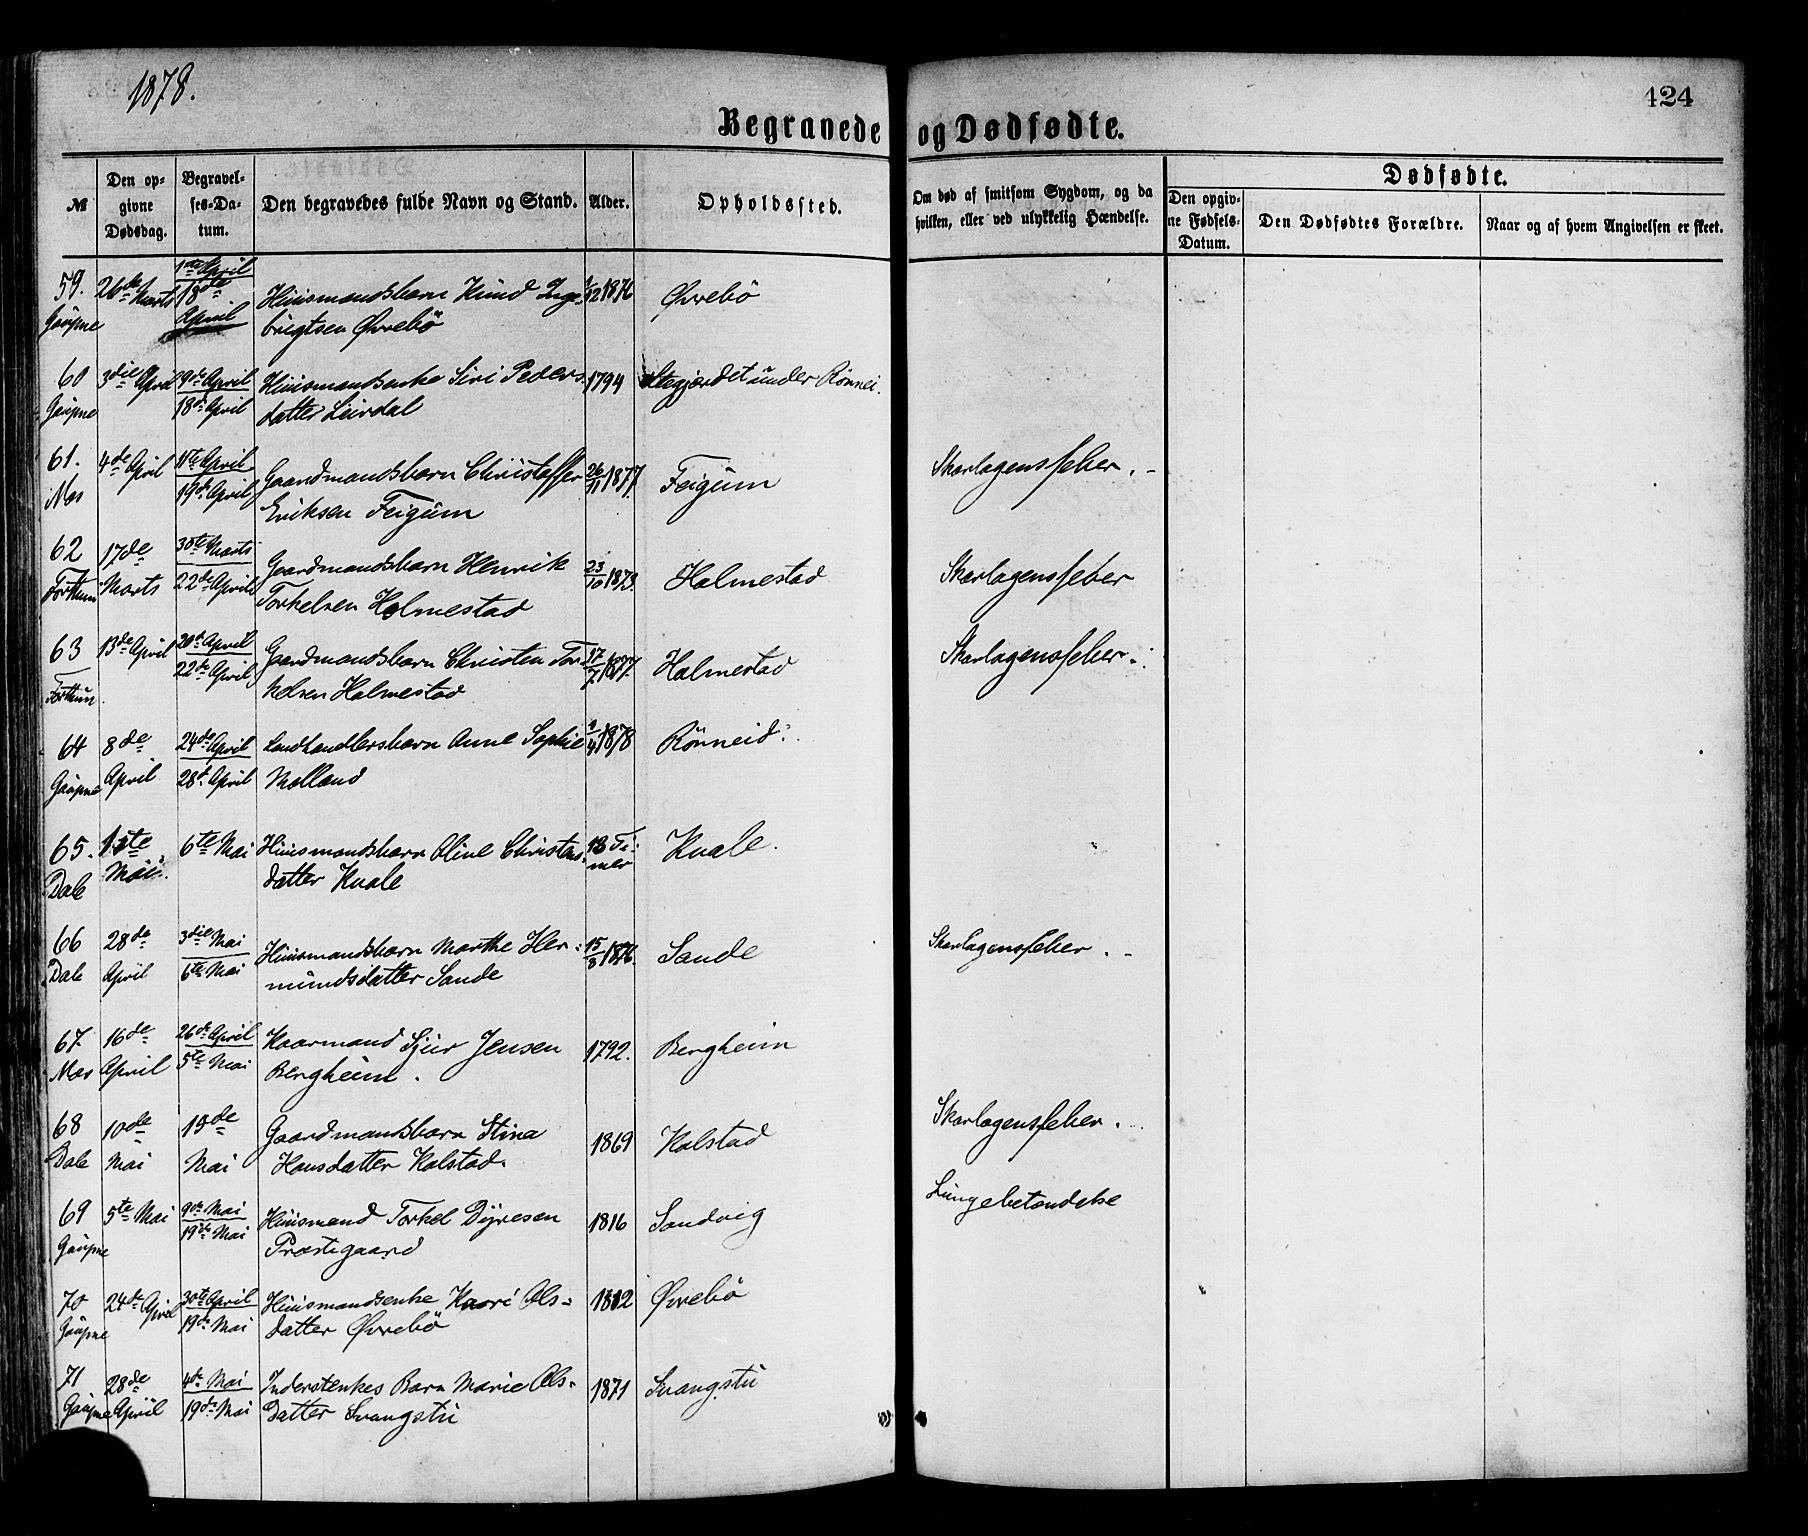 1878.
424
Begravede og Dødfødte.
№
Den op-
givne
Dødsdag.
Begravel-
ses-Da-
tum.
Den begravedes fulde Navn og Stand.
Alder.
Opholdssted.
Om død af smitsom Sygdom, og da
hvilken, eller ved ulykkelig Hændelse.
Dødfødte.
Den opgiv-
ne Fødsels-
Datum.
Den Dødfødtes Forældre.
Naar og af hvem Angivelsen er skeet.
59. 26de Marts 1ste April Huusmandsbarn Knud Inge- 1876 Øvrebö
Gaupne 18de April brigtsen Øvrebö
60 3die April 9de April Huusmandsenke Siri Peders- 1794 under Rönnei.
Gaupne 18de April datter Leirdal
61. 4de April 11te April Gaardmandsbarn Christoffer 26/11 1877. Feigum Skarlagensfeber.
Nes 19de April Eriksen Feigum
62 17de 30te Marts Gaardmandsbarn Henrik 23/10 1873. Holmestad Skarlagensfeber
Forthun Marts 22de April Torkelsen Holmestad
63 13de April 20de April Gaardmandsbarn Christen Tor- 17/7 1877. Holmestad Skarlagensfeber.
Forthun 22de April kelsen Holmestad
64 8de 24de April Landhandlersbarn Anne Sophie 1/4 1878 Rönneid.
Gaupne April 28de April Molland
65. Mai 6te Mai Huusmandsbarn Oline Christens- 18 Ti- Kvale.
Dale datter Kvale mer
66 28de 3die Mai Huusmandsbarn Marthe Her- 15/8 1876. Sande Skarlagensfeber.
Dale April 6te Mai mundsdatter Sande
67. 16de 26de April Kaarmand Sjur Jensen 1792. Bergheim
Nes April 5te Mai Bergheim.
68 10de 15de Gaardmandsbarn Stina 1869 Kolstad Skarlagensfeber.
Dale Mai Mai Hansdatter Kolstad.
69 5te Mai 9de Mai Huusmand Torkel Dyresen 1816 Sandvig Lungebetændelse
Gaupne 19de Mai Præstegaard
70 24de April 30te April Huusmandsenke Kaari Ols- 1812 Øvrebö
Gaupne 19de Mai datter Øvrebö
71 28de 4de Mai Inderstenkes Barn Marie Ols- 1871 Svangstu
Gaupne April 19de Mai datter Svangstu